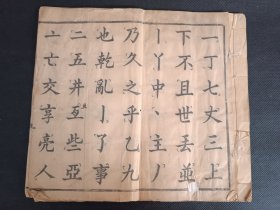 一丁七丈三上
下不且世丟並
丨丫中丶主丿
乃久之乎乙九
也乾亂亅了事
二五井互些亞
亠亡交享亮人